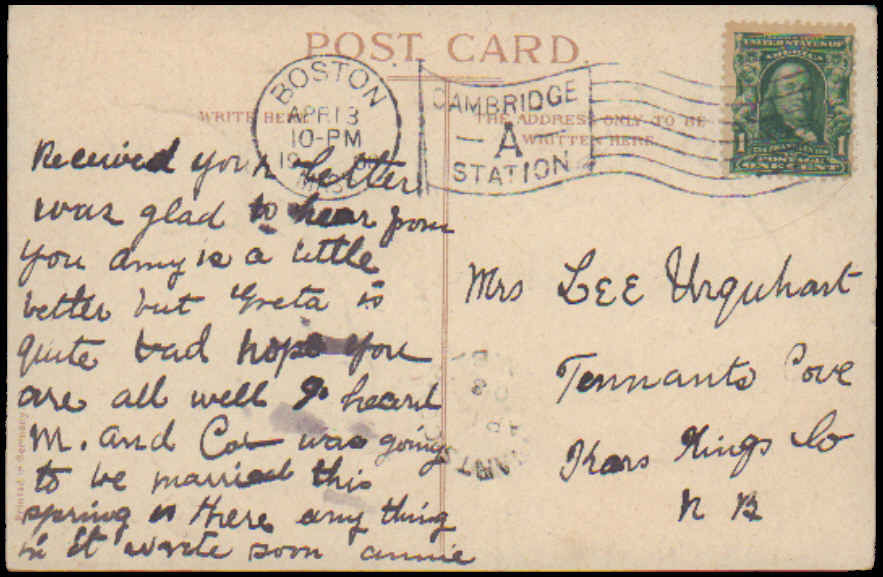 POST CARD
WRITE HERE
THE ADDRESS ONLY TO BE
WRITTEN HERE
BOSTON
APR 13
10-PM
19
MASS
CAMBRIDGE
A
STATION
UNITED STATES OF
AMERICA
1 1
ONE CENT
Received your letter
was glad to hear from
you Amy is a little
better but Greta is
quite bad hope you
are all well I heard
M. and Co was going
to be married this
spring is there any thing
in it write soon annie
Mrs LEE Urquhart
Tennants Cove
Kars Kings Co
N B
Printed in Germany